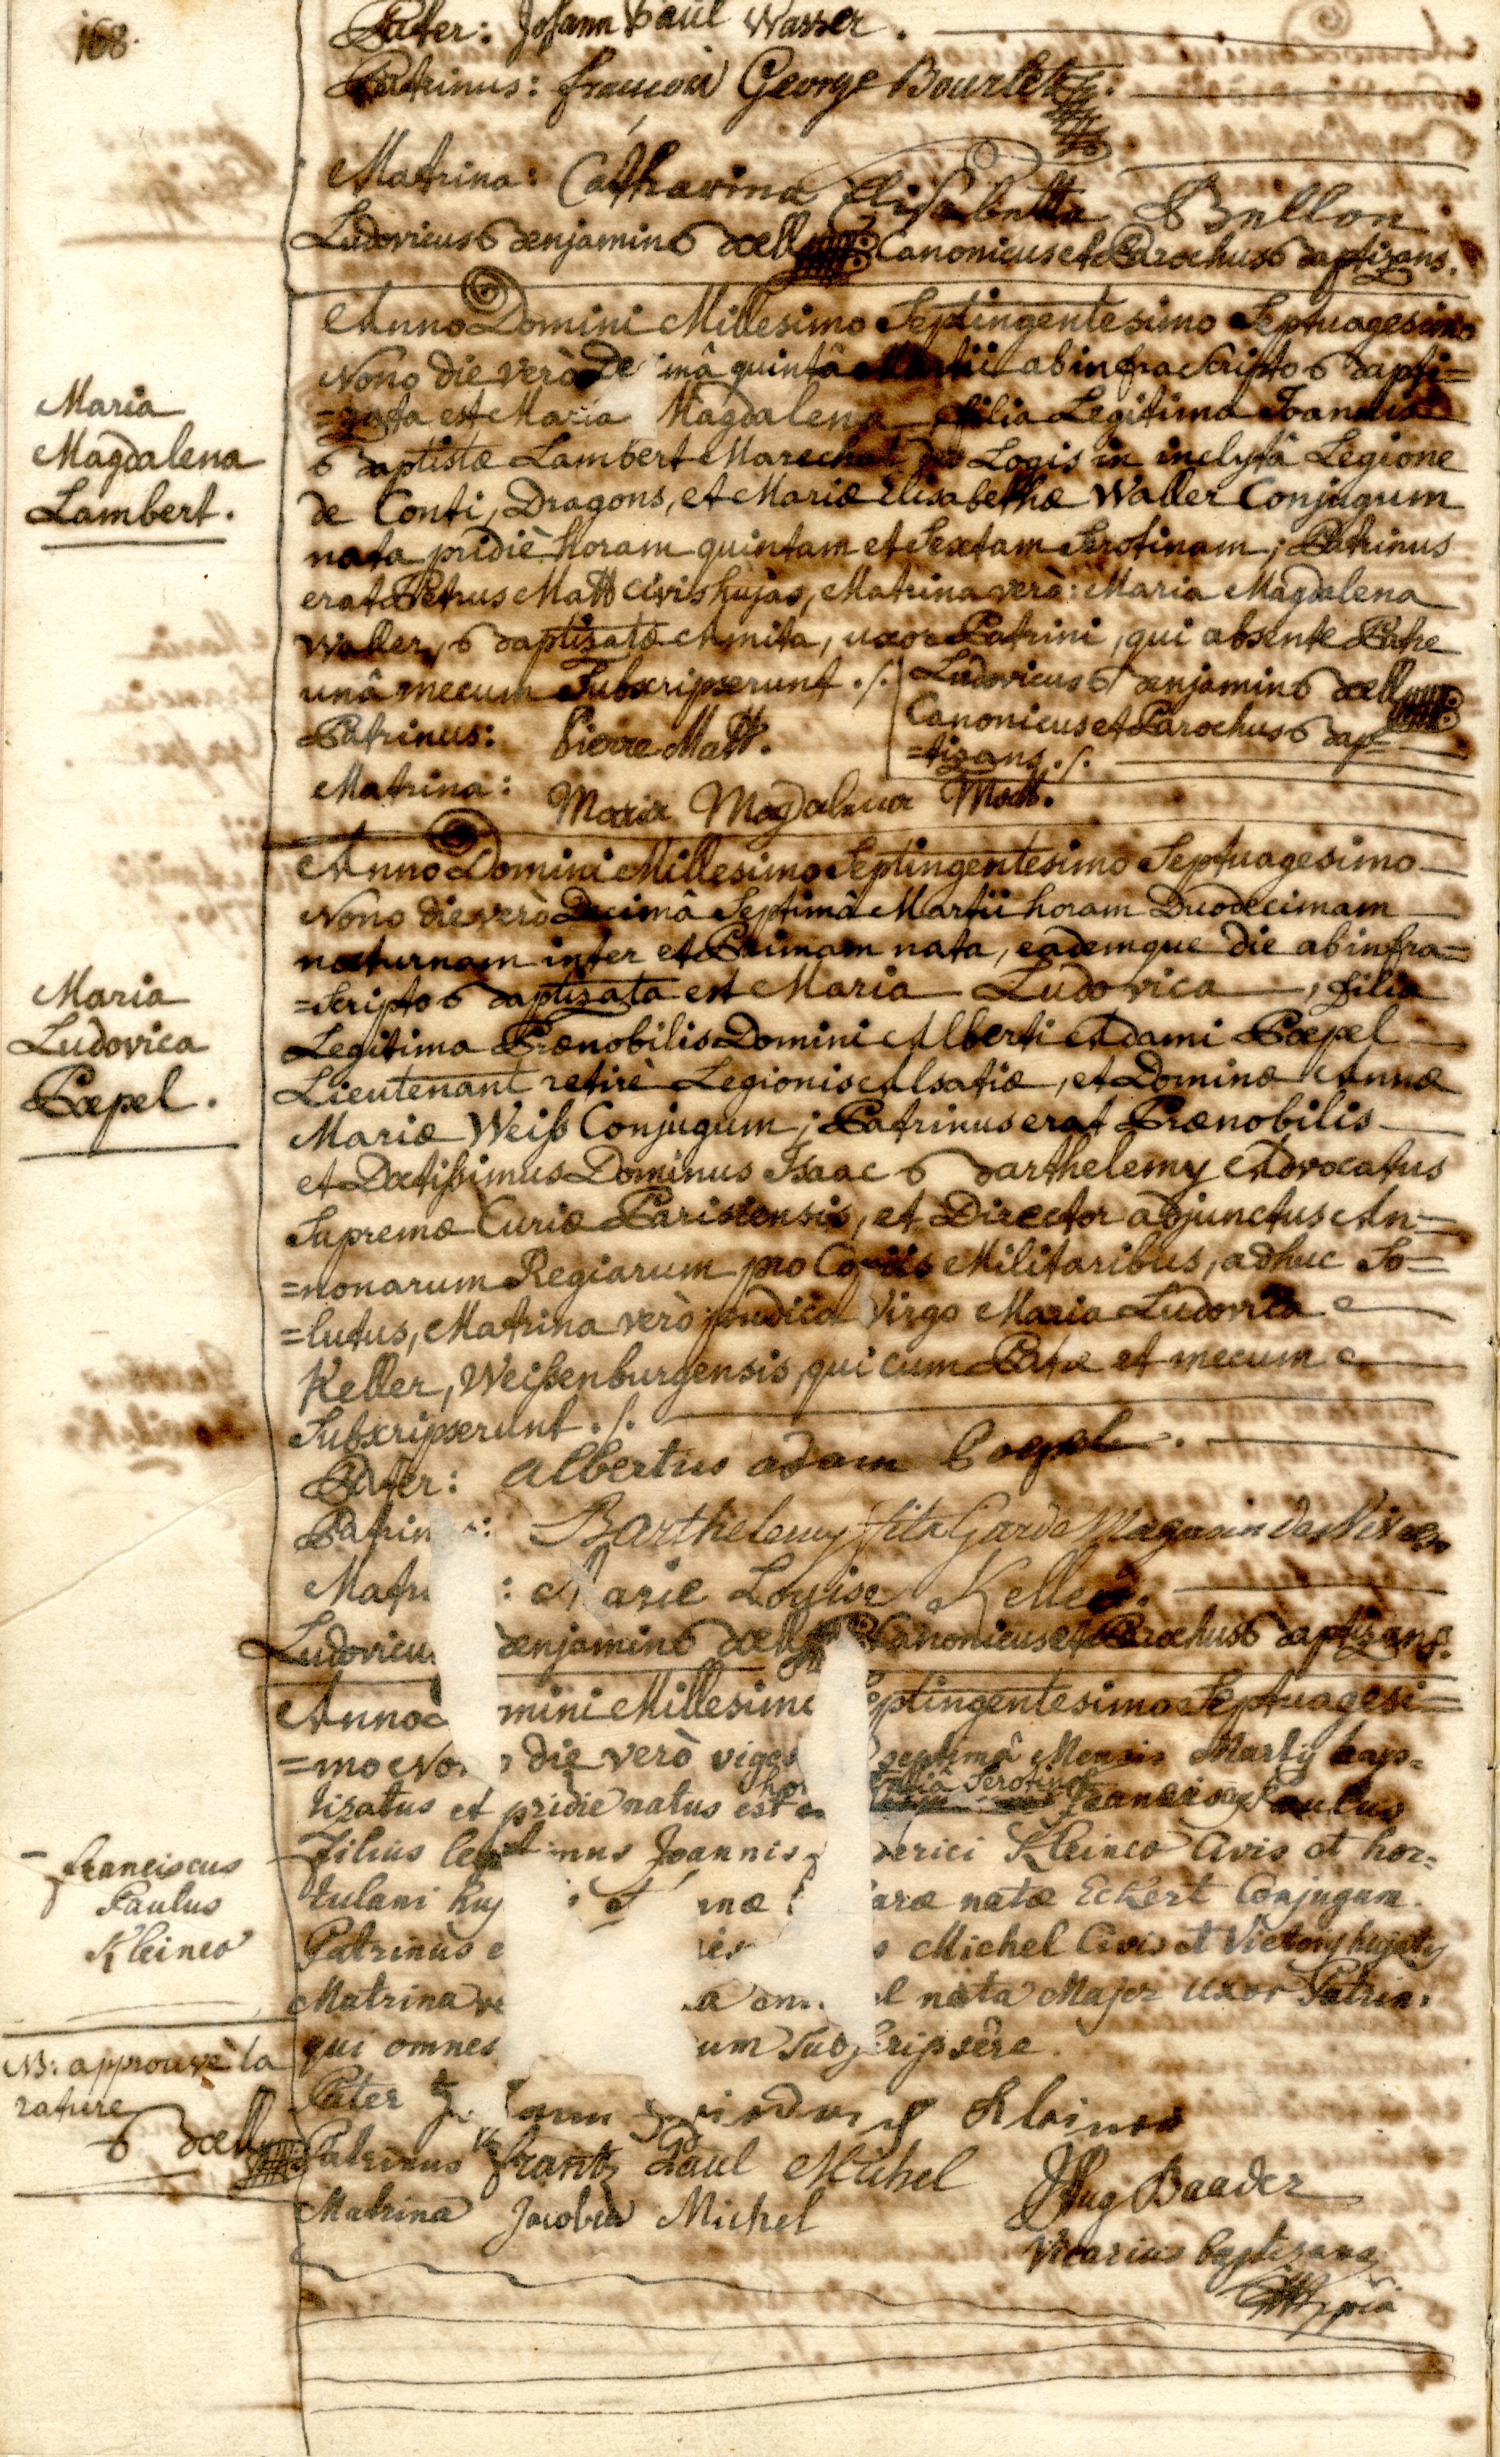 168.
Pater: Johann Paul Wasser.
Patrinus: françois George Bourlet
Matrina: Catharina Elisabetta Bellon
Ludovicus Benjamin Boell Canonicus et Parochus Baptizans.
Maria
Magdalena
Lambert.
Anno Domini Millesimo Septingentesimo Septuagesimo
Nono die verò De imâ quintâ Martii ab infra Scripto Bapti=
=zata est Maria Magdalena, filia Legitima Joannis
Baptistæ Lambert Marechal des Logis in inclytâ Legione
de Conti, Dragons, et Mariæ Elisabethæ Waller Conjugum
nata pridiè horam quintam et Sextam Serotinam; Patrinus
erat Petrus Matt civis hujas, Matrina verò: Maria Magdalena
Waller, Baptizatæ Amita, uxor Patrini, qui absente Patre
unâ mecum Subscripserunt ./.
Ludovicus Benjamin Boell
Canonicus et Parochus Bap=
=tizans ./.
Patrinus: Pierre Matt.
Matrina: Maria Magdalena Matt.
Maria
Ludovica
Poepel.
Anno Domini Millesimo Septingentesimo Septuagesimo
Nono die verò Decimâ Septimâ Martii horam Duodecimam
nocturnam inter et Primam nata, eademque die ab infra=
=scripto Baptizata est Maria Ludovica, filia
Legitima Prænobilis Domini Alberti Adami Poepel
Lieutenant retirè Legionis Alsatiæ, et Dominæ Annæ
Mariæ Weiß Conjugum; Patrinus erat Prænobilis
et Doctißimus Dominus Isaac Barthelemy Advocatus
Supremæ Curiæ Parisiensis, et Director adjunctus An=
=nonarum Regiarum pro Copiis Militaribus, adhuc So=
=lutus, Matrina verò pudica Virgo Maria Ludovica
Keller, Weißenburgensis, qui cum Patre et mecum
Subscripserunt ./.
Pater: Albertus adam Poepel.
Patrin : Barthelemy Garde Magasin des Vivres
Matr : Marie Louise Keller.
Ludovicu Benjamin Boell Canonicus et Parochus Baptizans.
Franciscus
Paulus
Kleinco
Anno mini Millesimo eptingentesimo Septuagesi=
=mo No die verò viges septimâ Mensis Martij bap=
tizatus et pridie natus est ho tiâ Serotinâ Franciscus Paulus
Filius legitimus Joannis erici Kleinco Civis et hor=
tulani huj et næ aræ natæ Eckert Conjugum.
Patrinus e s Michel Civis et Victorij hujatis
Matrina ve a l nata Majer uxor Patrin.
qui omnes um Subscripsêre.
NB: approuvè la
rature
Boell
Pater Kleinco
Patrinus frantz Paul Michel
Matrina Jacobea Michel
Hug Baader
Vicarius baptizans